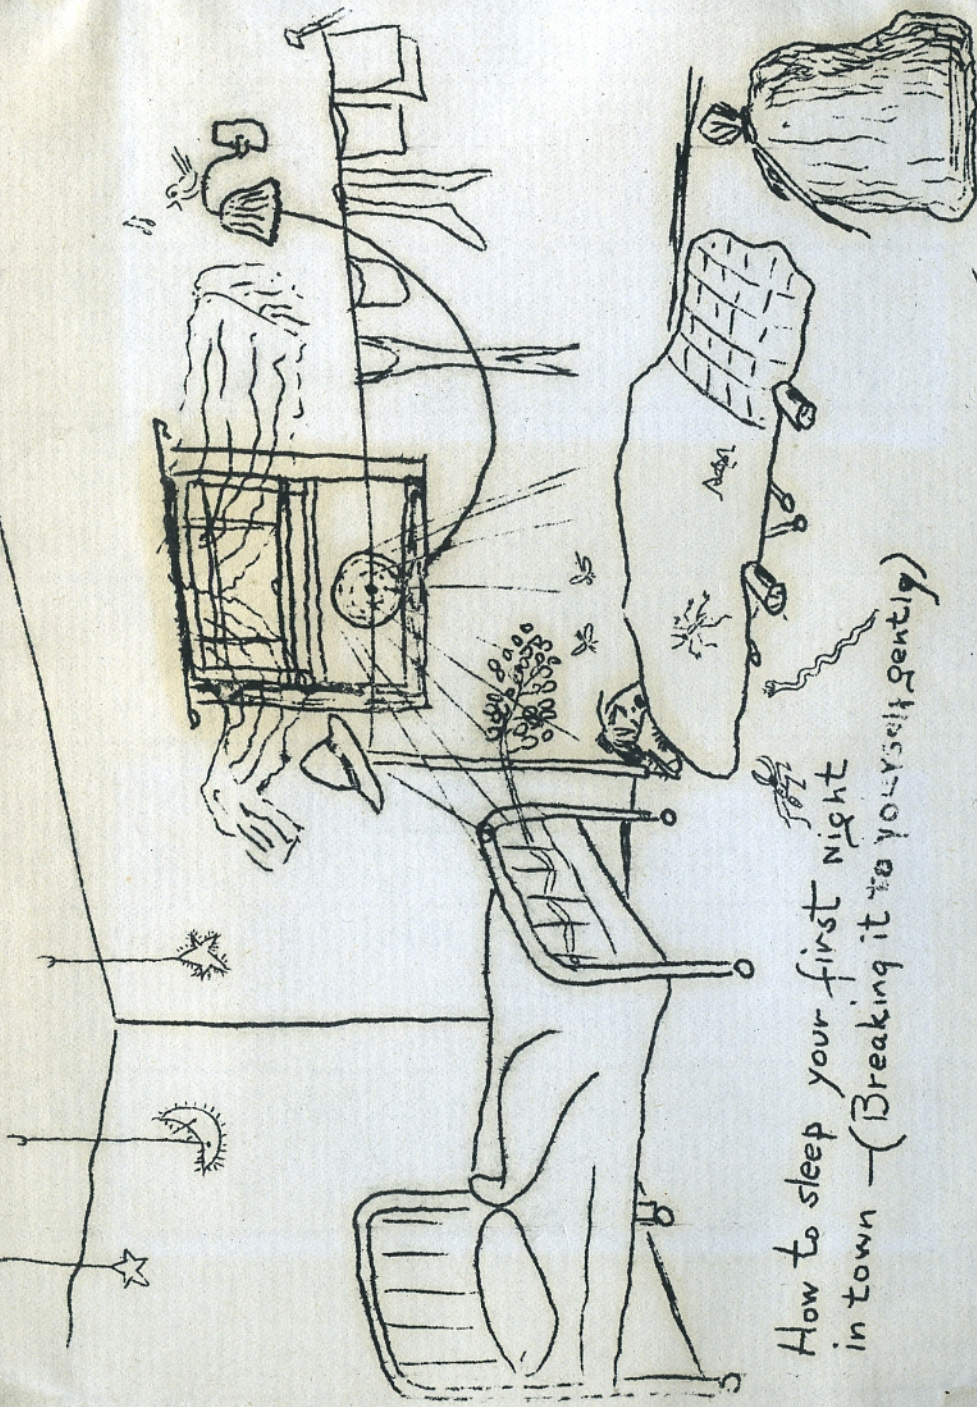 How to sleep your first night
in town — (Breaking it to yourself gently)